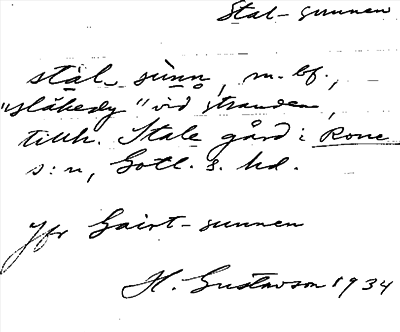 Stal-sunnen
stāl sùnn, m. bf.,
"slåhedy" vid stranden,
tillh. Stale gård i Rone
s:n, Gotl. s. hd.
Jfr Gairt-sunnen
H. Gustavson 1934